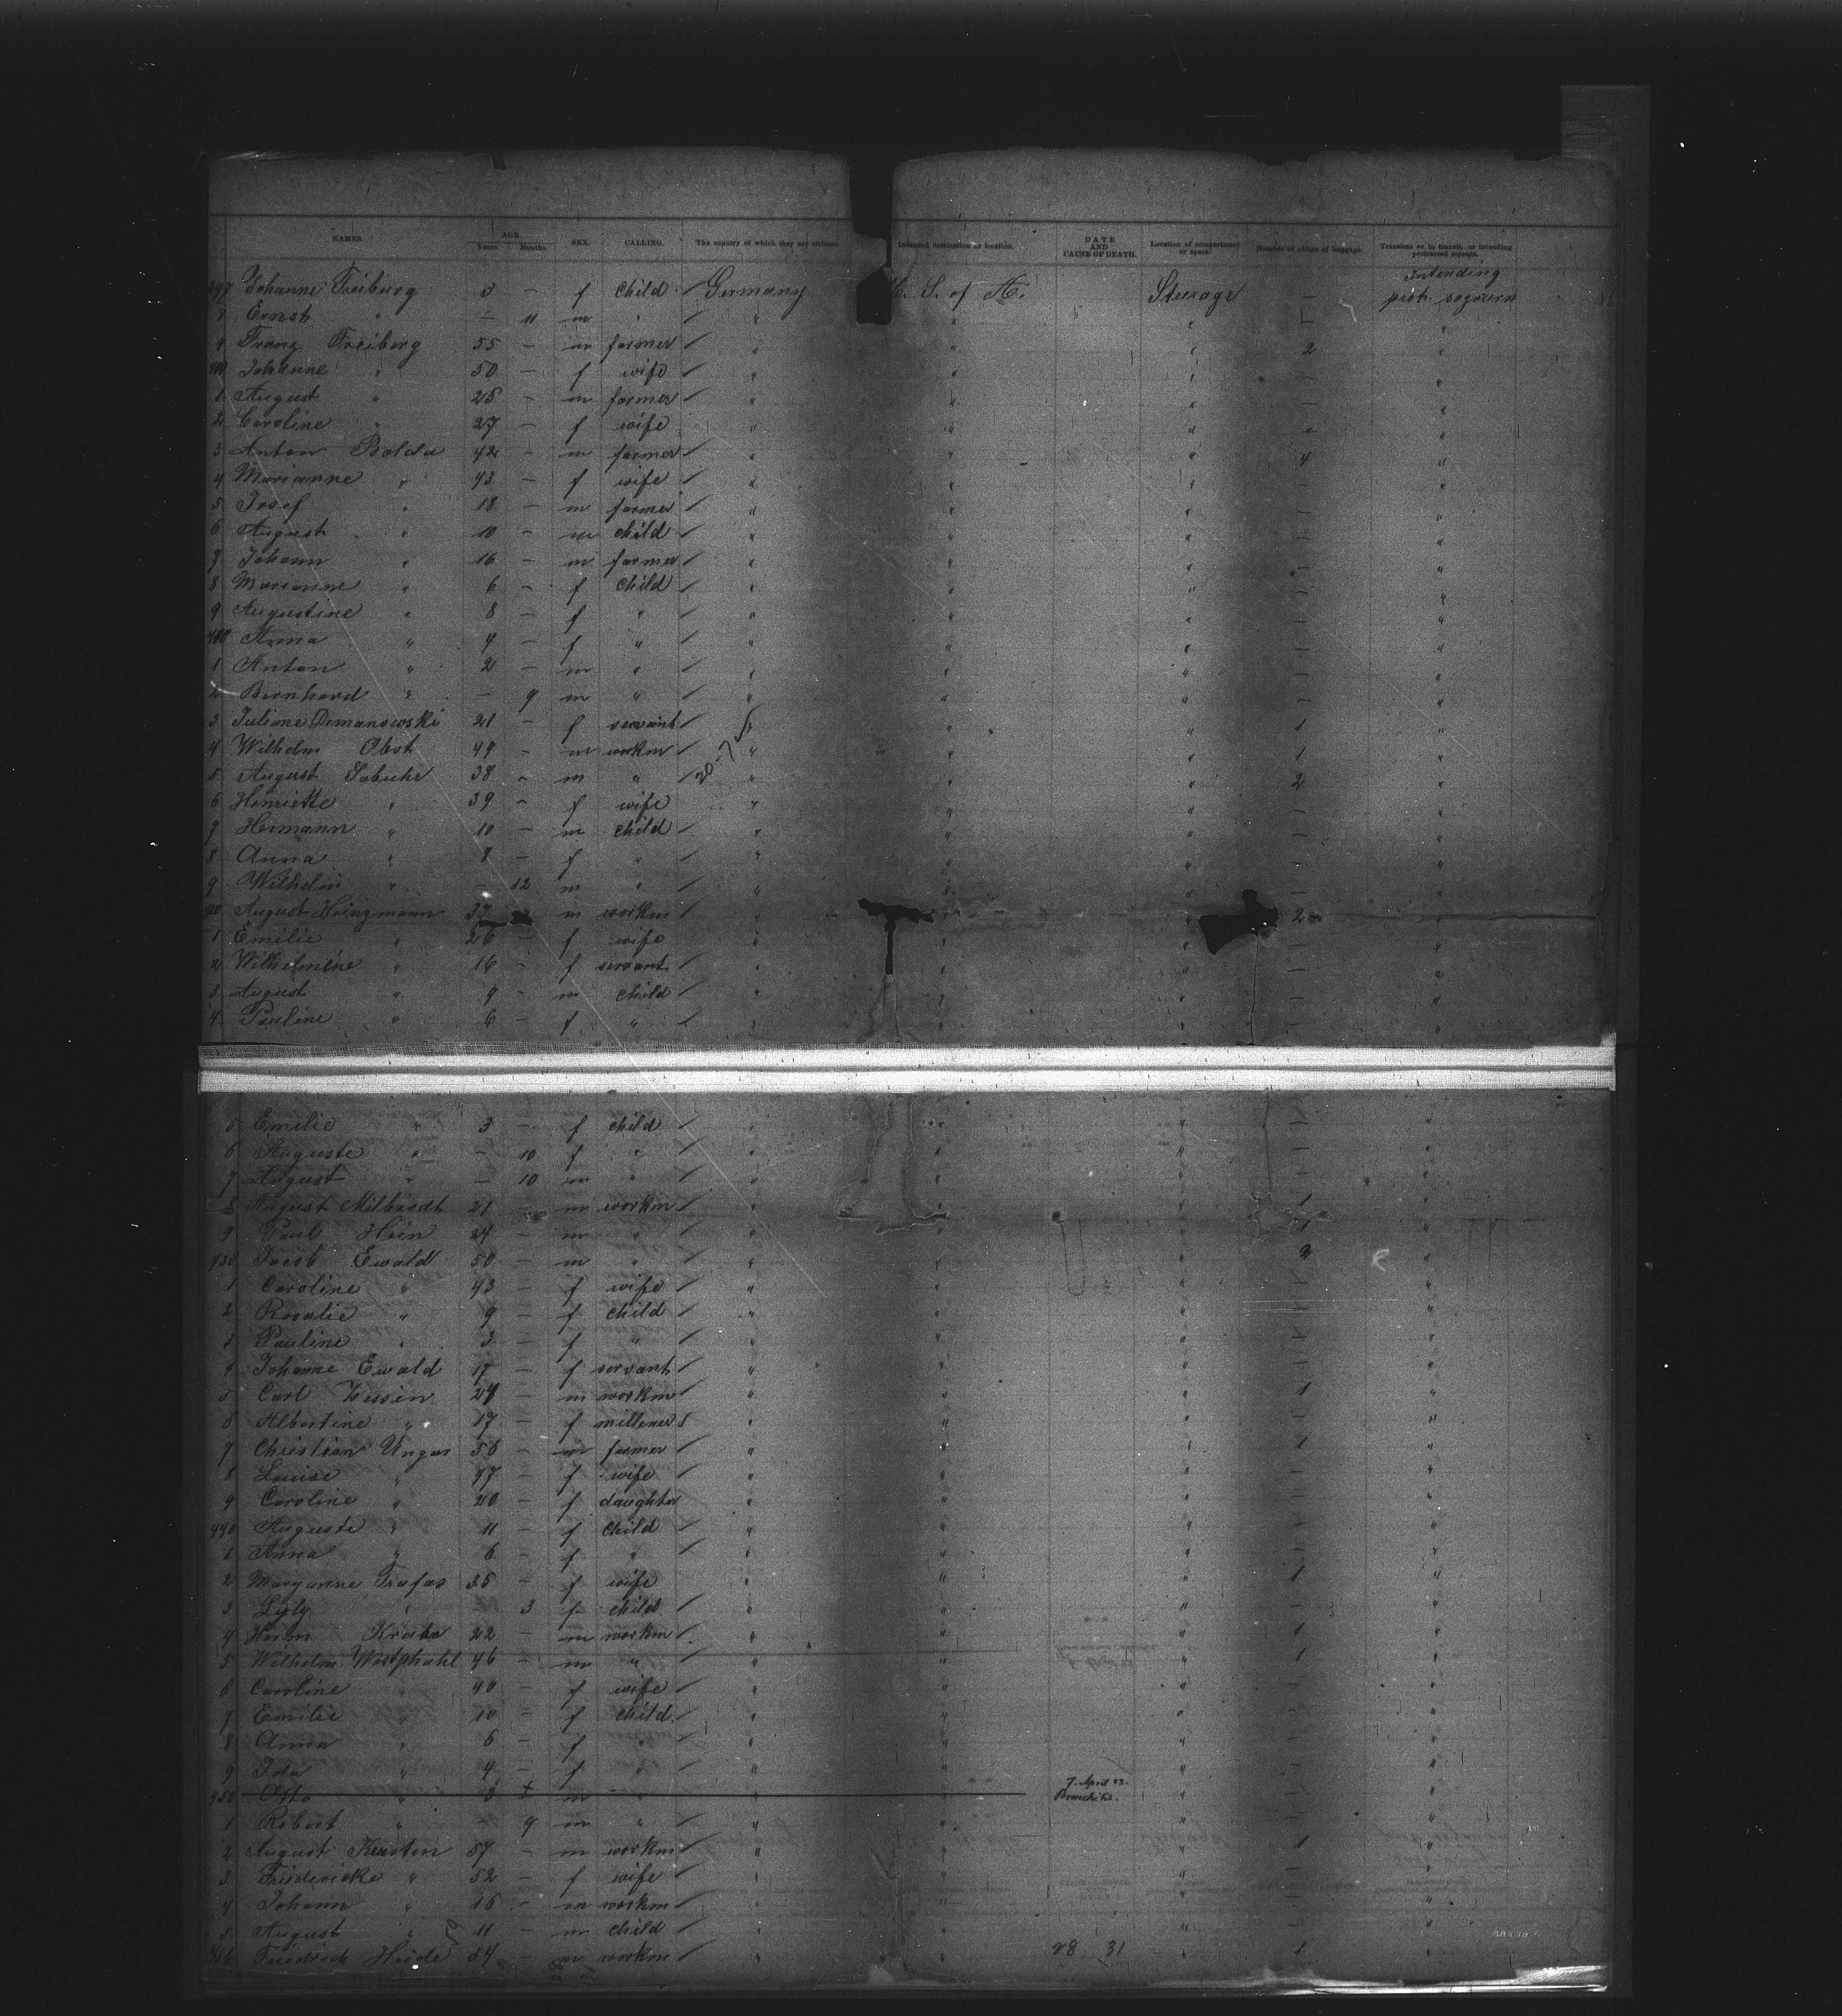 NAMES. AGE. Years. Months. SEX. CALLING. The country of which they are citizens. Intended destination or location. DATE AND CAUSE OF DEATH. Location of compartment or space. Number of pieces of baggage. Transient or in transit, or intending protracted sojourn.
397 Johanne Freiburg 3 – f child Germany U. S. of A. Steerage – Intending prot. sojourn
8 Ernst " – 11 m " " " " – "
9 Franz Freiberg 55 – m farmer " " " 2 "
400 Johanne " 50 – f wife " " " – "
1 August " 28 – m farmer " " " – "
2 Caroline " 27 – f wife " " " – "
3 Anton Balda 42 – m farmer " " " 4 "
4 Marianne " 43 – f wife " " " – "
5 Josef " 18 – m farmer " " " – "
6 August " 10 – m child " " " – "
7 Johann " 16 – m farmer " " " – "
8 Marianne " 6 – f child " " " – "
9 Augustine " 8 – f " " " " – "
410 Anna " 4 – f " " " " – "
1 Anton " 2 – m " " " " – "
2 Bernhard " – 9 m " " " " – "
3 Juliane Dimanowski 21 – f servant " " " 1 "
4 Wilhelm Obst 44 – m workm " " " 1 "
5 August Sabuhr 38 – m " 20-7 " " " 2 "
6 Henriette " 39 – f wife " " " – "
7 Hermann " 10 – m child " " " – "
8 Anna " 8 – f " " " " – "
9 Wilhelm " – 12 m " " " " – "
420 August Heinzmann 37 m workm " " " 2 "
1 Emilie " 26 – f wife " " " – "
2 Wilhelmine " 16 – f servant " " " – "
3 August " 9 – m child " " " – "
4 Pauline " 6 – f " " " " – "
5 Emilie " 3 – f child " " " – "
6 Auguste " – 10 f " " " " – "
7 August " – 10 m " " " " – "
8 August Milbradt 21 – m workm " " " 1 "
9 Paul Hein 24 – m " " " " 1 "
430 Jacob Ewald 50 – m " " " " 2 "
1 Caroline " 43 – f wife " " " – "
2 Rosalie " 9 – f child " " " – "
3 Pauline " 3 – f " " " " – "
4 Johanne Ewald 17 – f servant " " " – "
5 Carl Zessin 24 – m workm " " " 1 "
6 Albertine " 17 – f millener " " " – "
7 Christian Ungar 56 – m farmer " " " 1 "
8 Louise " 47 – f wife " " " – "
9 Caroline " 20 – f daughter " " " – "
440 Auguste " 11 – f child " " " – "
1 Anna " 6 – f " " " " – "
2 Maryanne Trafas 35 – f wife " " " 1 "
3 " – 3 f child " " " – "
4 Heim 22 – m workm " " " 1 "
5 Wilhelm Westphahl 46 – m " " " " 1 "
6 Caroline " 40 – f wife " " " – "
7 Emilie " 10 – f child " " " – "
8 Anna " 6 – f " " " " – "
9 Ida " 4 – f " " " " – "
450 Otto " 3 m " " " 7. April 83. " – "
Bronchitis.
1 Robert " – 9 m " " " " – "
2 August Kersten 57 – m workm " " " 1 "
3 Friedericke " 52 – f wife " " " – "
4 Johann " 16 – m workm " " " – "
5 August " 11 – m child " " " – "
456 Friedrich Heide 54 – m workm " " 28 31 " 1 "